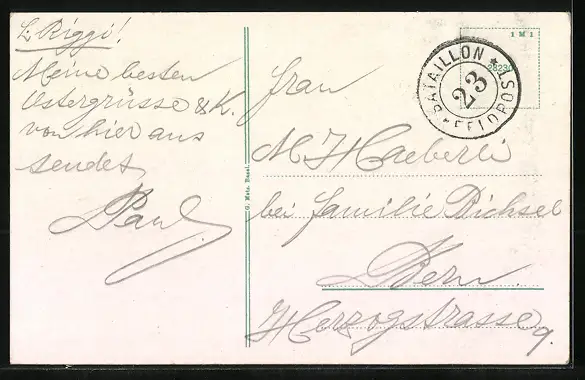 L. Riggi!
Meine besten
Ostergrüsse & K.
von hier aus
sendet
Paul.
G. Metz, Basel.
1 M 1
28230
BATAILLON * FELDPOST *
23
Frau
M Haeberli
bei Familie Bichsel
Bern
Herzogstrasse 9.